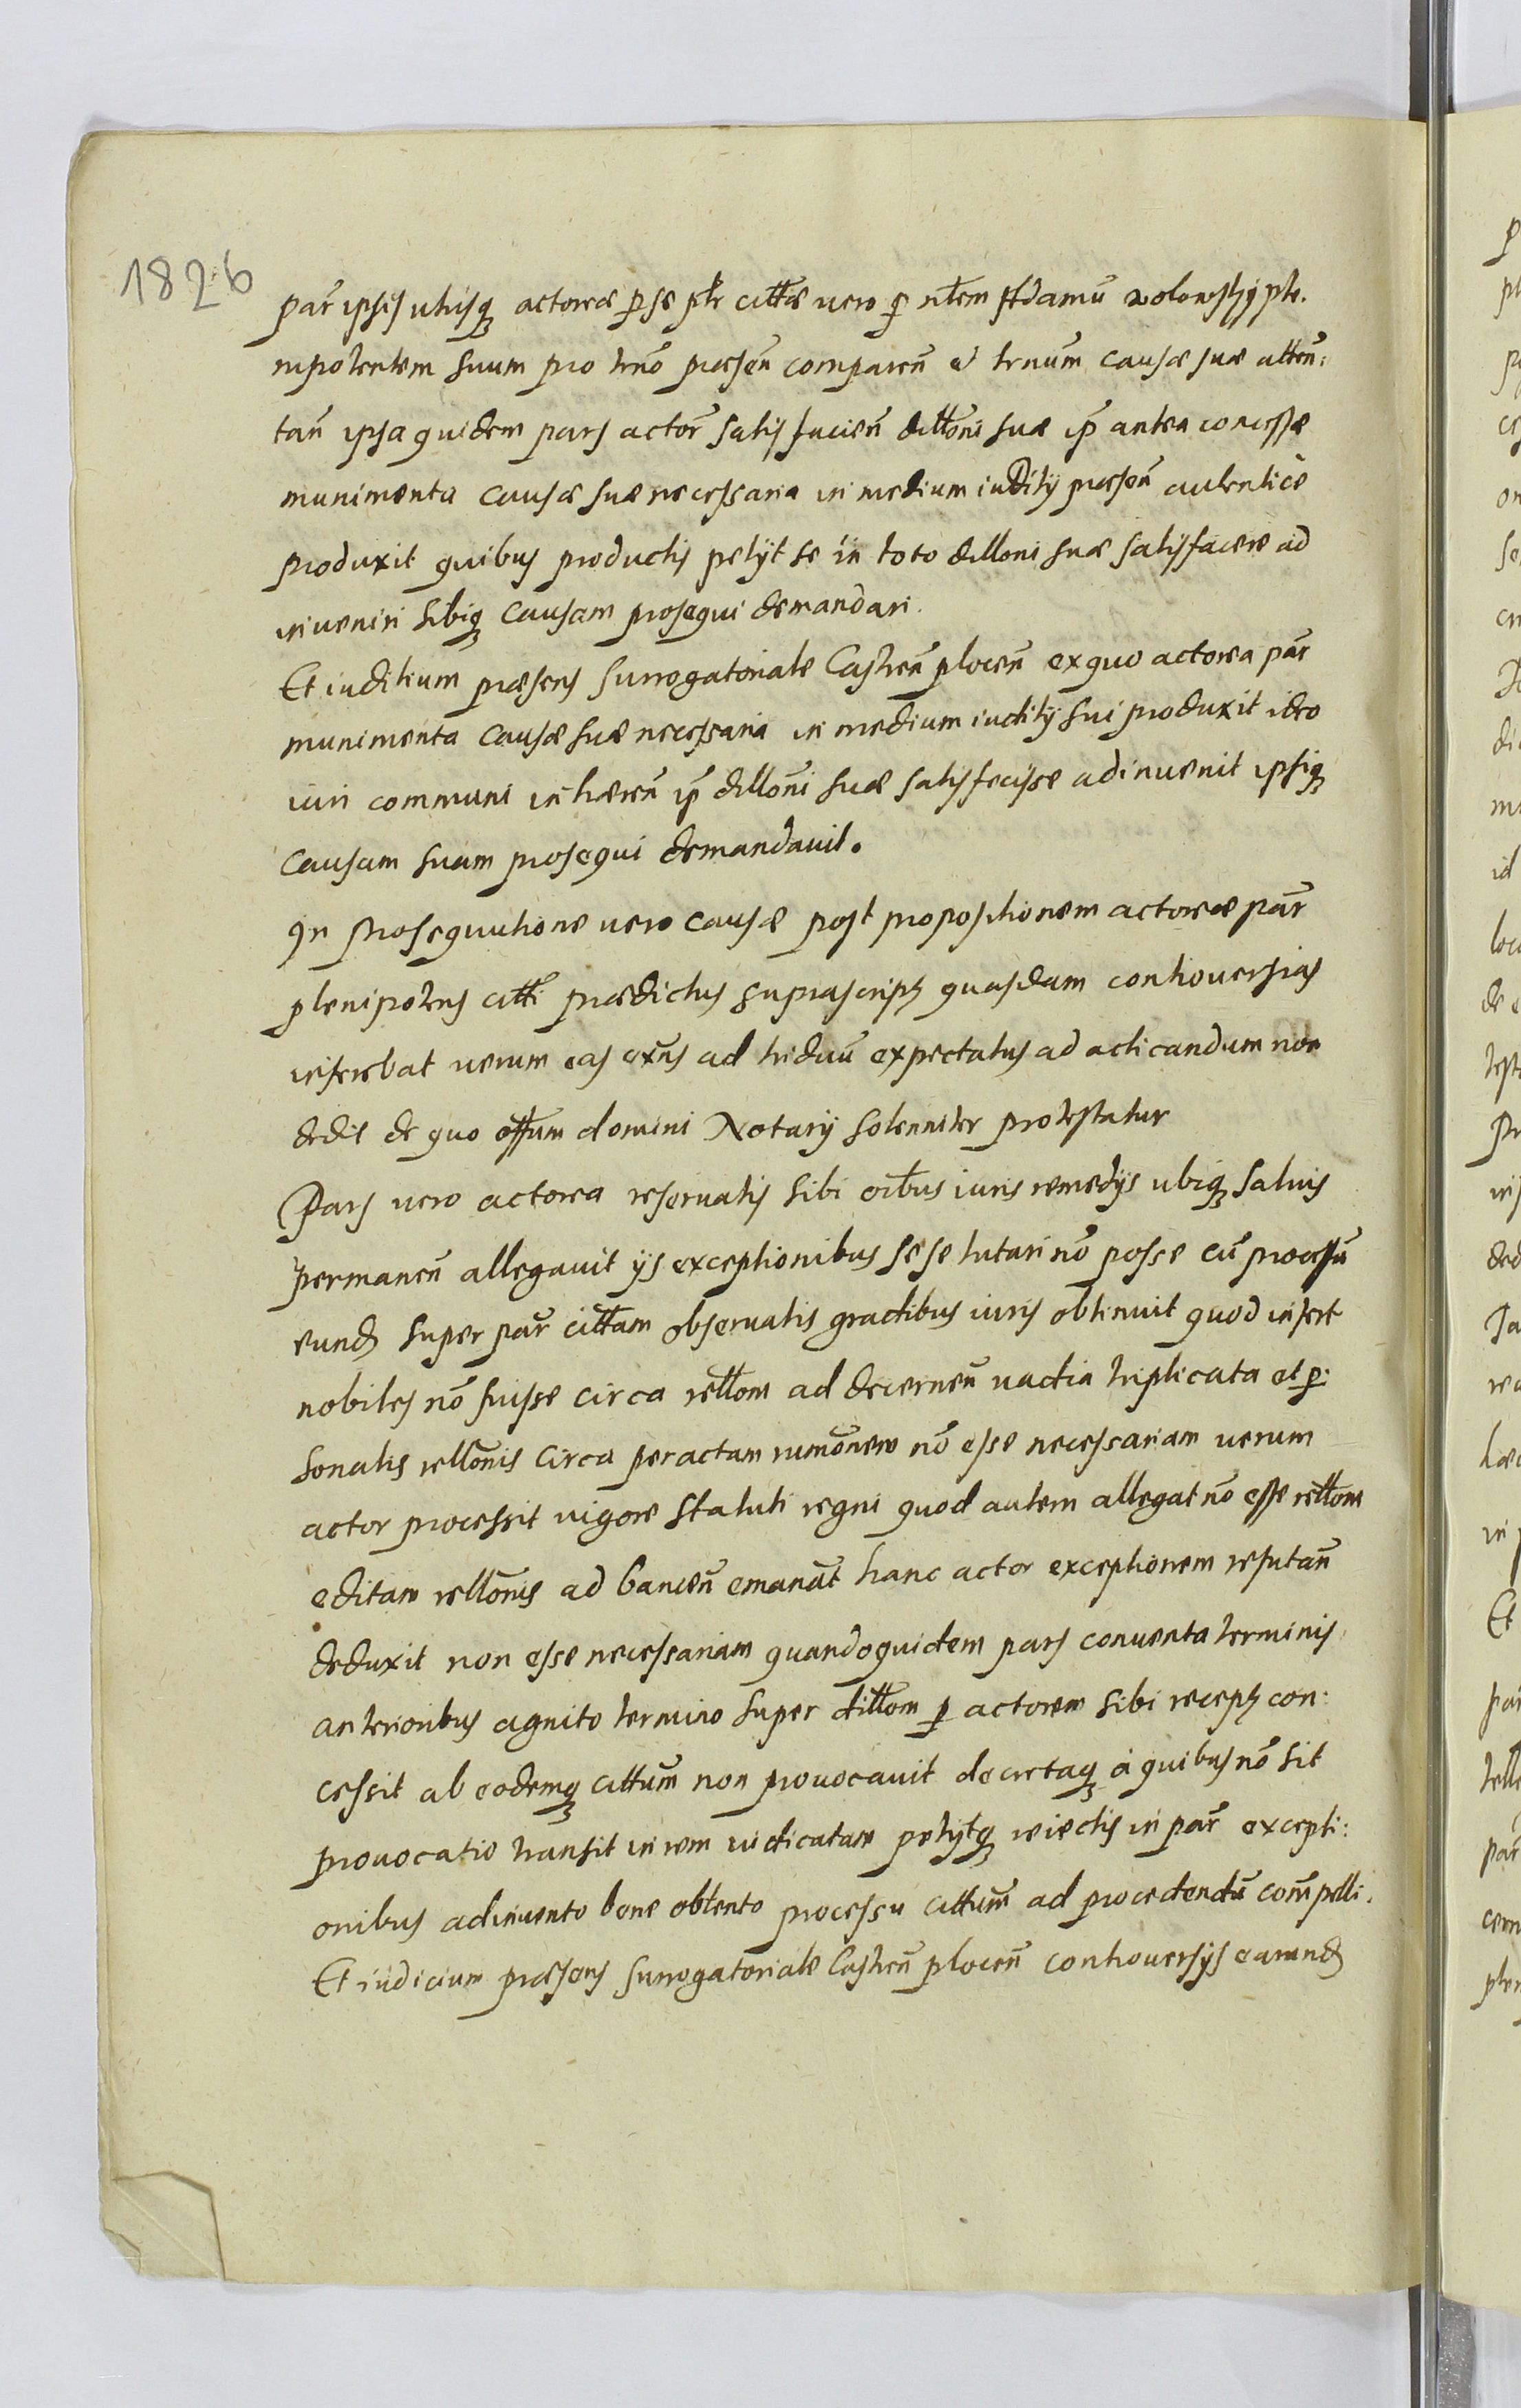 1826
par̃ ipsis utrisq̨ actorea p se pt̃r cittæ vero p nłem Adamũ Wolowski ple.
nipotentem suum pro trno præsen comparen et trnum causæ suæ atten:
tan ipsa quidem pars actor satisfacien dittoni suæ ip̃ antea concessæ
munimenta causæ suæ necessaria in medium iuditÿ præsen autentice
produxit quibus productis petÿt se in toto dilloni suæ satisfacere ad
inveniri sibiq̨ causam prosequi demandari.
Et iuditium præsens surrogatoriale Castren plocen ex quo actorea par̃
munimenta causæ suæ necessaria in medium iuditÿ sui produxit ideo
iuri communi inhæren ip̃ dilloni suæ satisfecisse adinuenit ipsiq̨
causam suam prosequi demandauit.
In prosequutione uero causæ post propositionem actoreæ par̃
plenipotens citti prædictus suprascrip̨ quasdam controuersias
inferebat uerum eas exns ad triduũ expectatus ad acticandum non
dedit de quo offum domini Notarÿ solenniter protestatur
Pars uero actorea reseruatis sibi oibus iuris remedÿs ubiq̨ saluis
permanen allegauit ÿs exceptionibus sese tutari nõ posse cũ processũ
eund super par̃ cittam obseruatis gradibus iuris obtinuit quod infert
nobiles nõ fuisse circa rellom ad decernen uadia triplicata et p:
sonalis rellonis circa peractam rumonem nõ esse necessariam uerum
actor processit uigore statuti regni quod autem allegat nõ esse rellom
editam rellonis ad bancen emanat hanc actor exceptionem refutan
deduxit non esse necessariam quandoquidem pars conuenta terminis
anterioribus agnito termino super dittom p actorem sibi recep̨ con:
cessit ab eodemq̨ cittum non prouocauit decretaq̨ à quibus nõ sit
prouocatio transit in rem iudicatam petÿtq̨ reiectis in par̃ excepti:
onibus adinuento bene obtento processu cittum ad procedendũ compelli.
Et iudicium præsens surrogatoriale Castren plocen controuersÿs earund